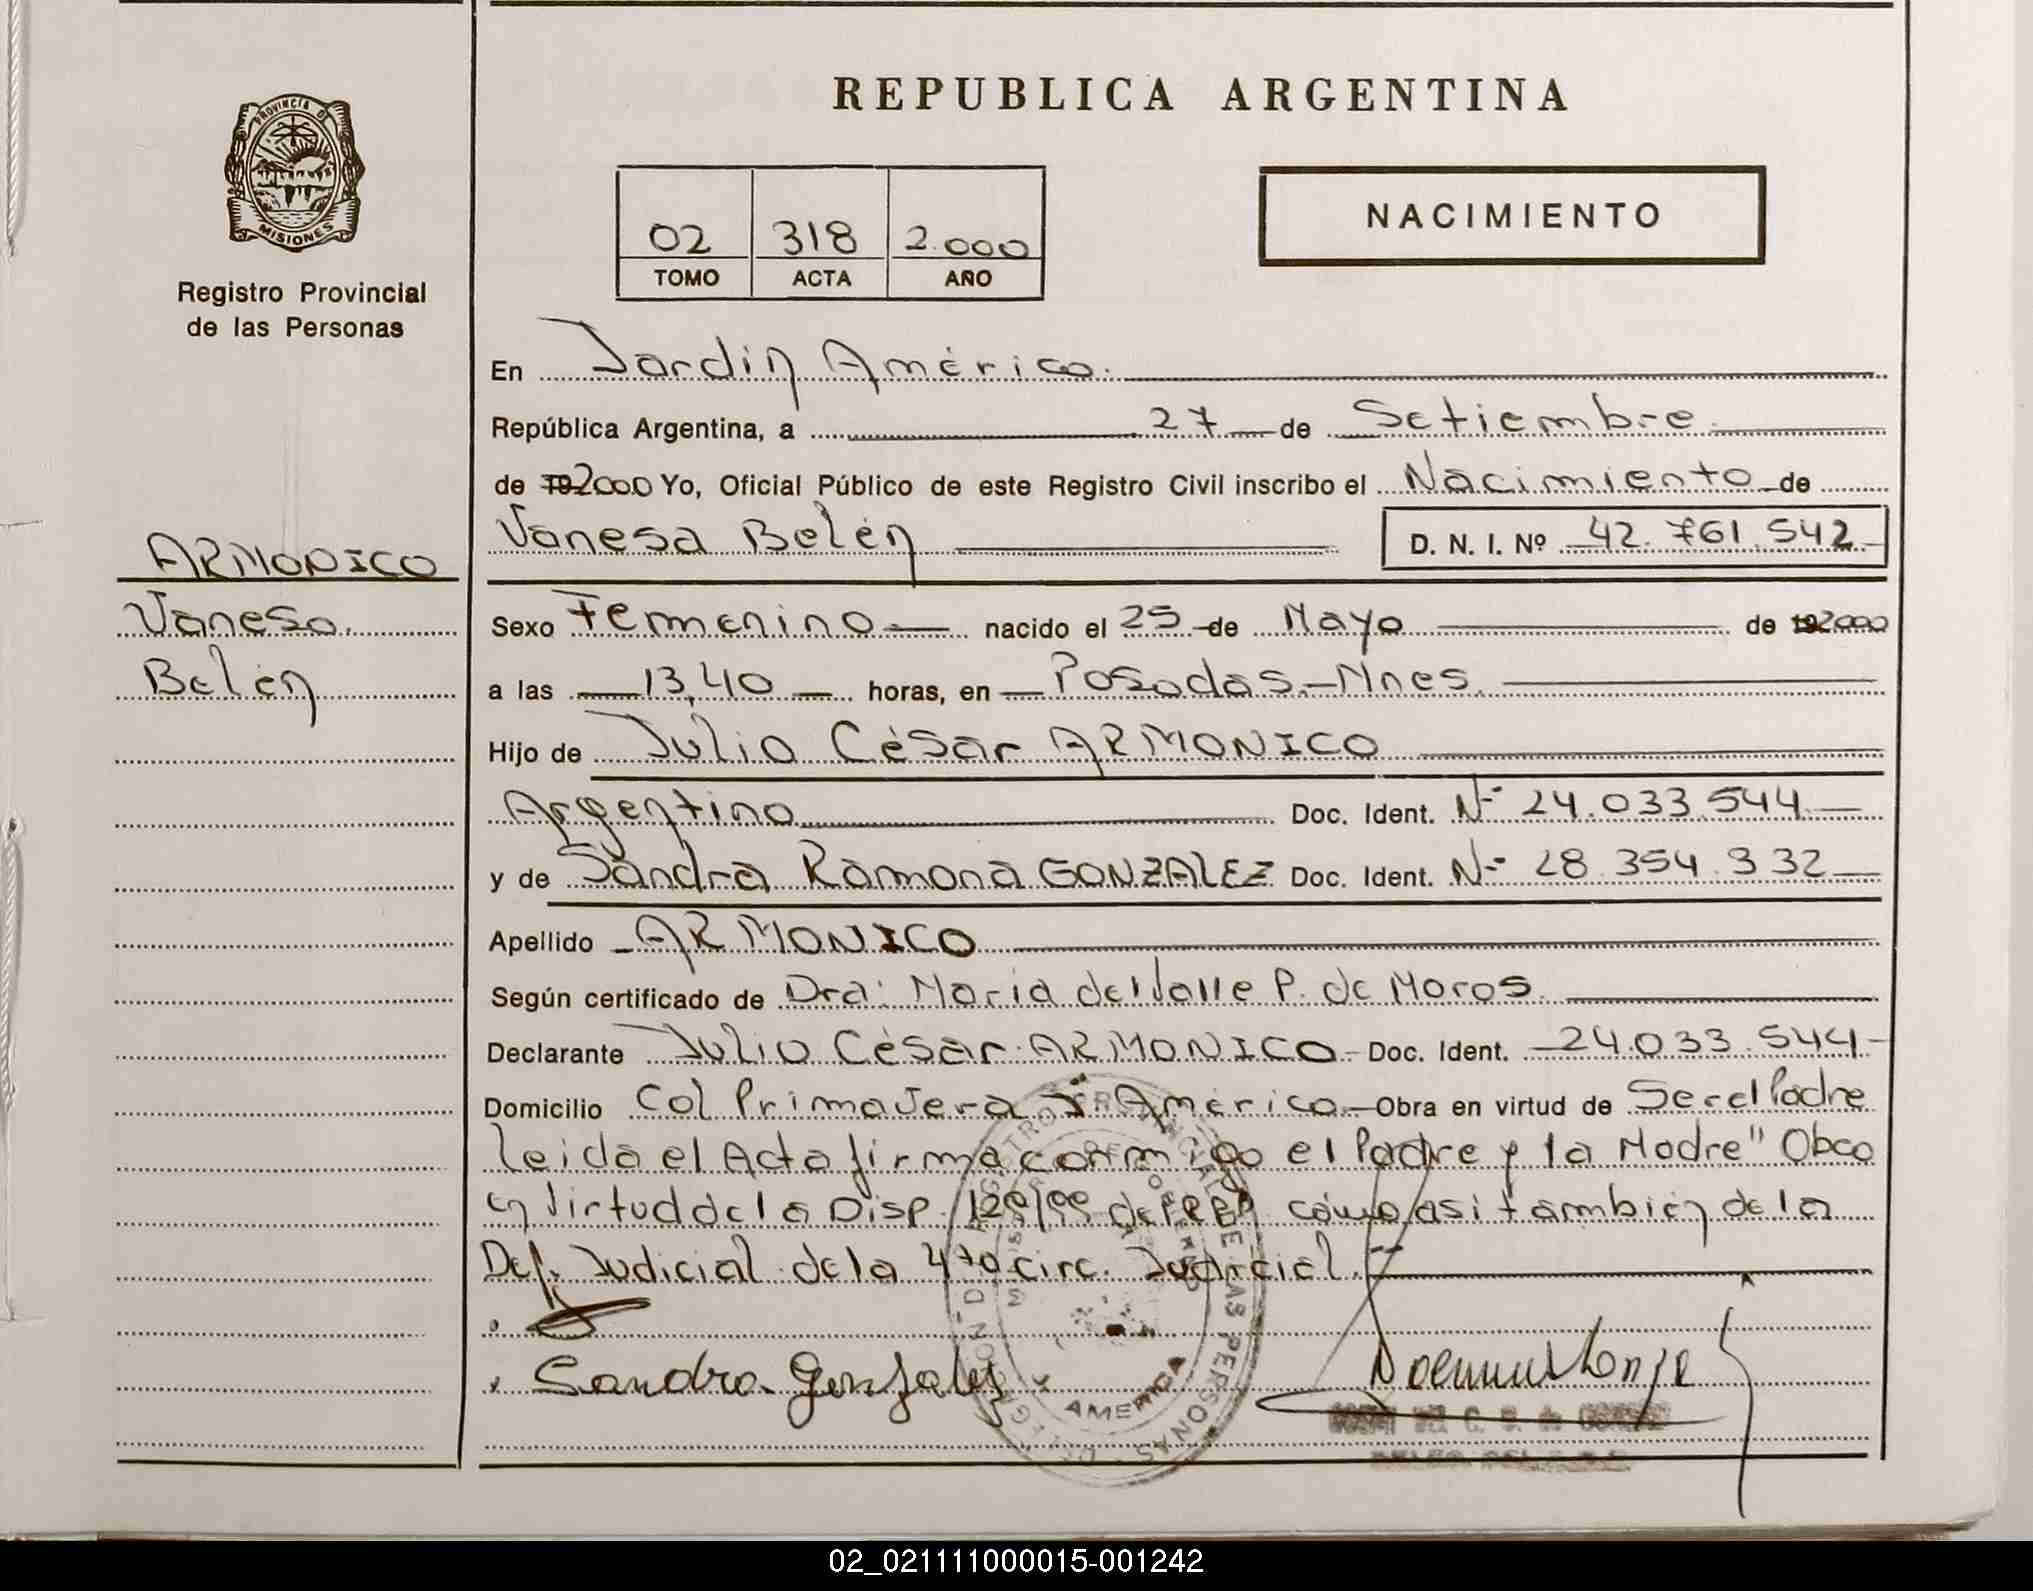 REPUBLICA ARGENTINA
PROVINCIA DE
MISIONES
Registro Provincial
de las Personas
02 318 2.000
TOMO ACTA AÑO
NACIMIENTO
En Jardín América.
República Argentina, a 27 de Setiembre
de 2000 Yo, Oficial Público de este Registro Civil inscribo el Nacimiento de
Vanesa Belén D. N. I. Nº 42.761.542
ARMONICO
Vanesa
Belén
Sexo Femenino nacido el 25 de Mayo de 2000
a las 13,40 horas, en Posadas-Mnes.
Hijo de Julio César ARMONICO
Argentino Doc. Ident. Nº 24.033.544
y de Sandra Ramona GONZALEZ Doc. Ident. Nº 28.354.332
Apellido ARMONICO
Según certificado de Dra: Maria del Valle P. de Moros.
Declarante Julio César ARMONICO Doc. Ident. 24.033.544
Domicilio Col Primavera J. América Obra en virtud de Ser el Padre
leida el Acta firma conmigo el Padre y la Madre" Obra
en Virtud de la Disp. 120/99 de RPP como asi también de la
Def. Judicial de la 4ta circ. Judicial.
Sandra Gonzalez
AMERICA
02_021111000015-001242